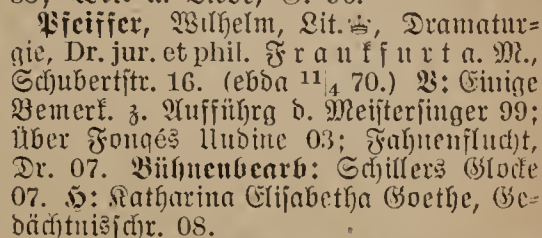 Pfeiffer, Wilhelm, Lit. ♕, Dramatur=
gie, Dr. jur. et phil. Frankfurt a. M.,
Schubertstr. 16. (ebda 11/4 70.) V: Einige
Bemerk. z. Aufführg d. Meistersinger 99;
Über Fouqés Undine 03; Fahnenflucht,
Dr. 07. Bühnenbearb: Schillers Glocke
07. H: Katharina Elisabetha Goethe, Ge=
dächtnisschr. 08.